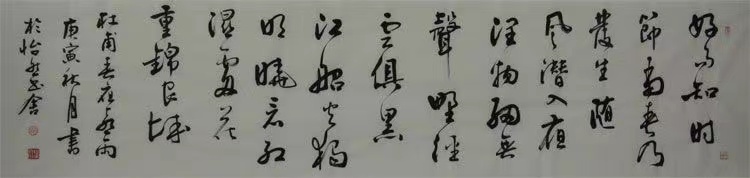 好雨知时
節當春乃
發生随
风潜入夜
润物细無
聲野径
云俱黑
江船火獨
明曉看红
濕處花
重錦官城
杜甫春夜喜雨
庚寅秋月書
於怡书舍